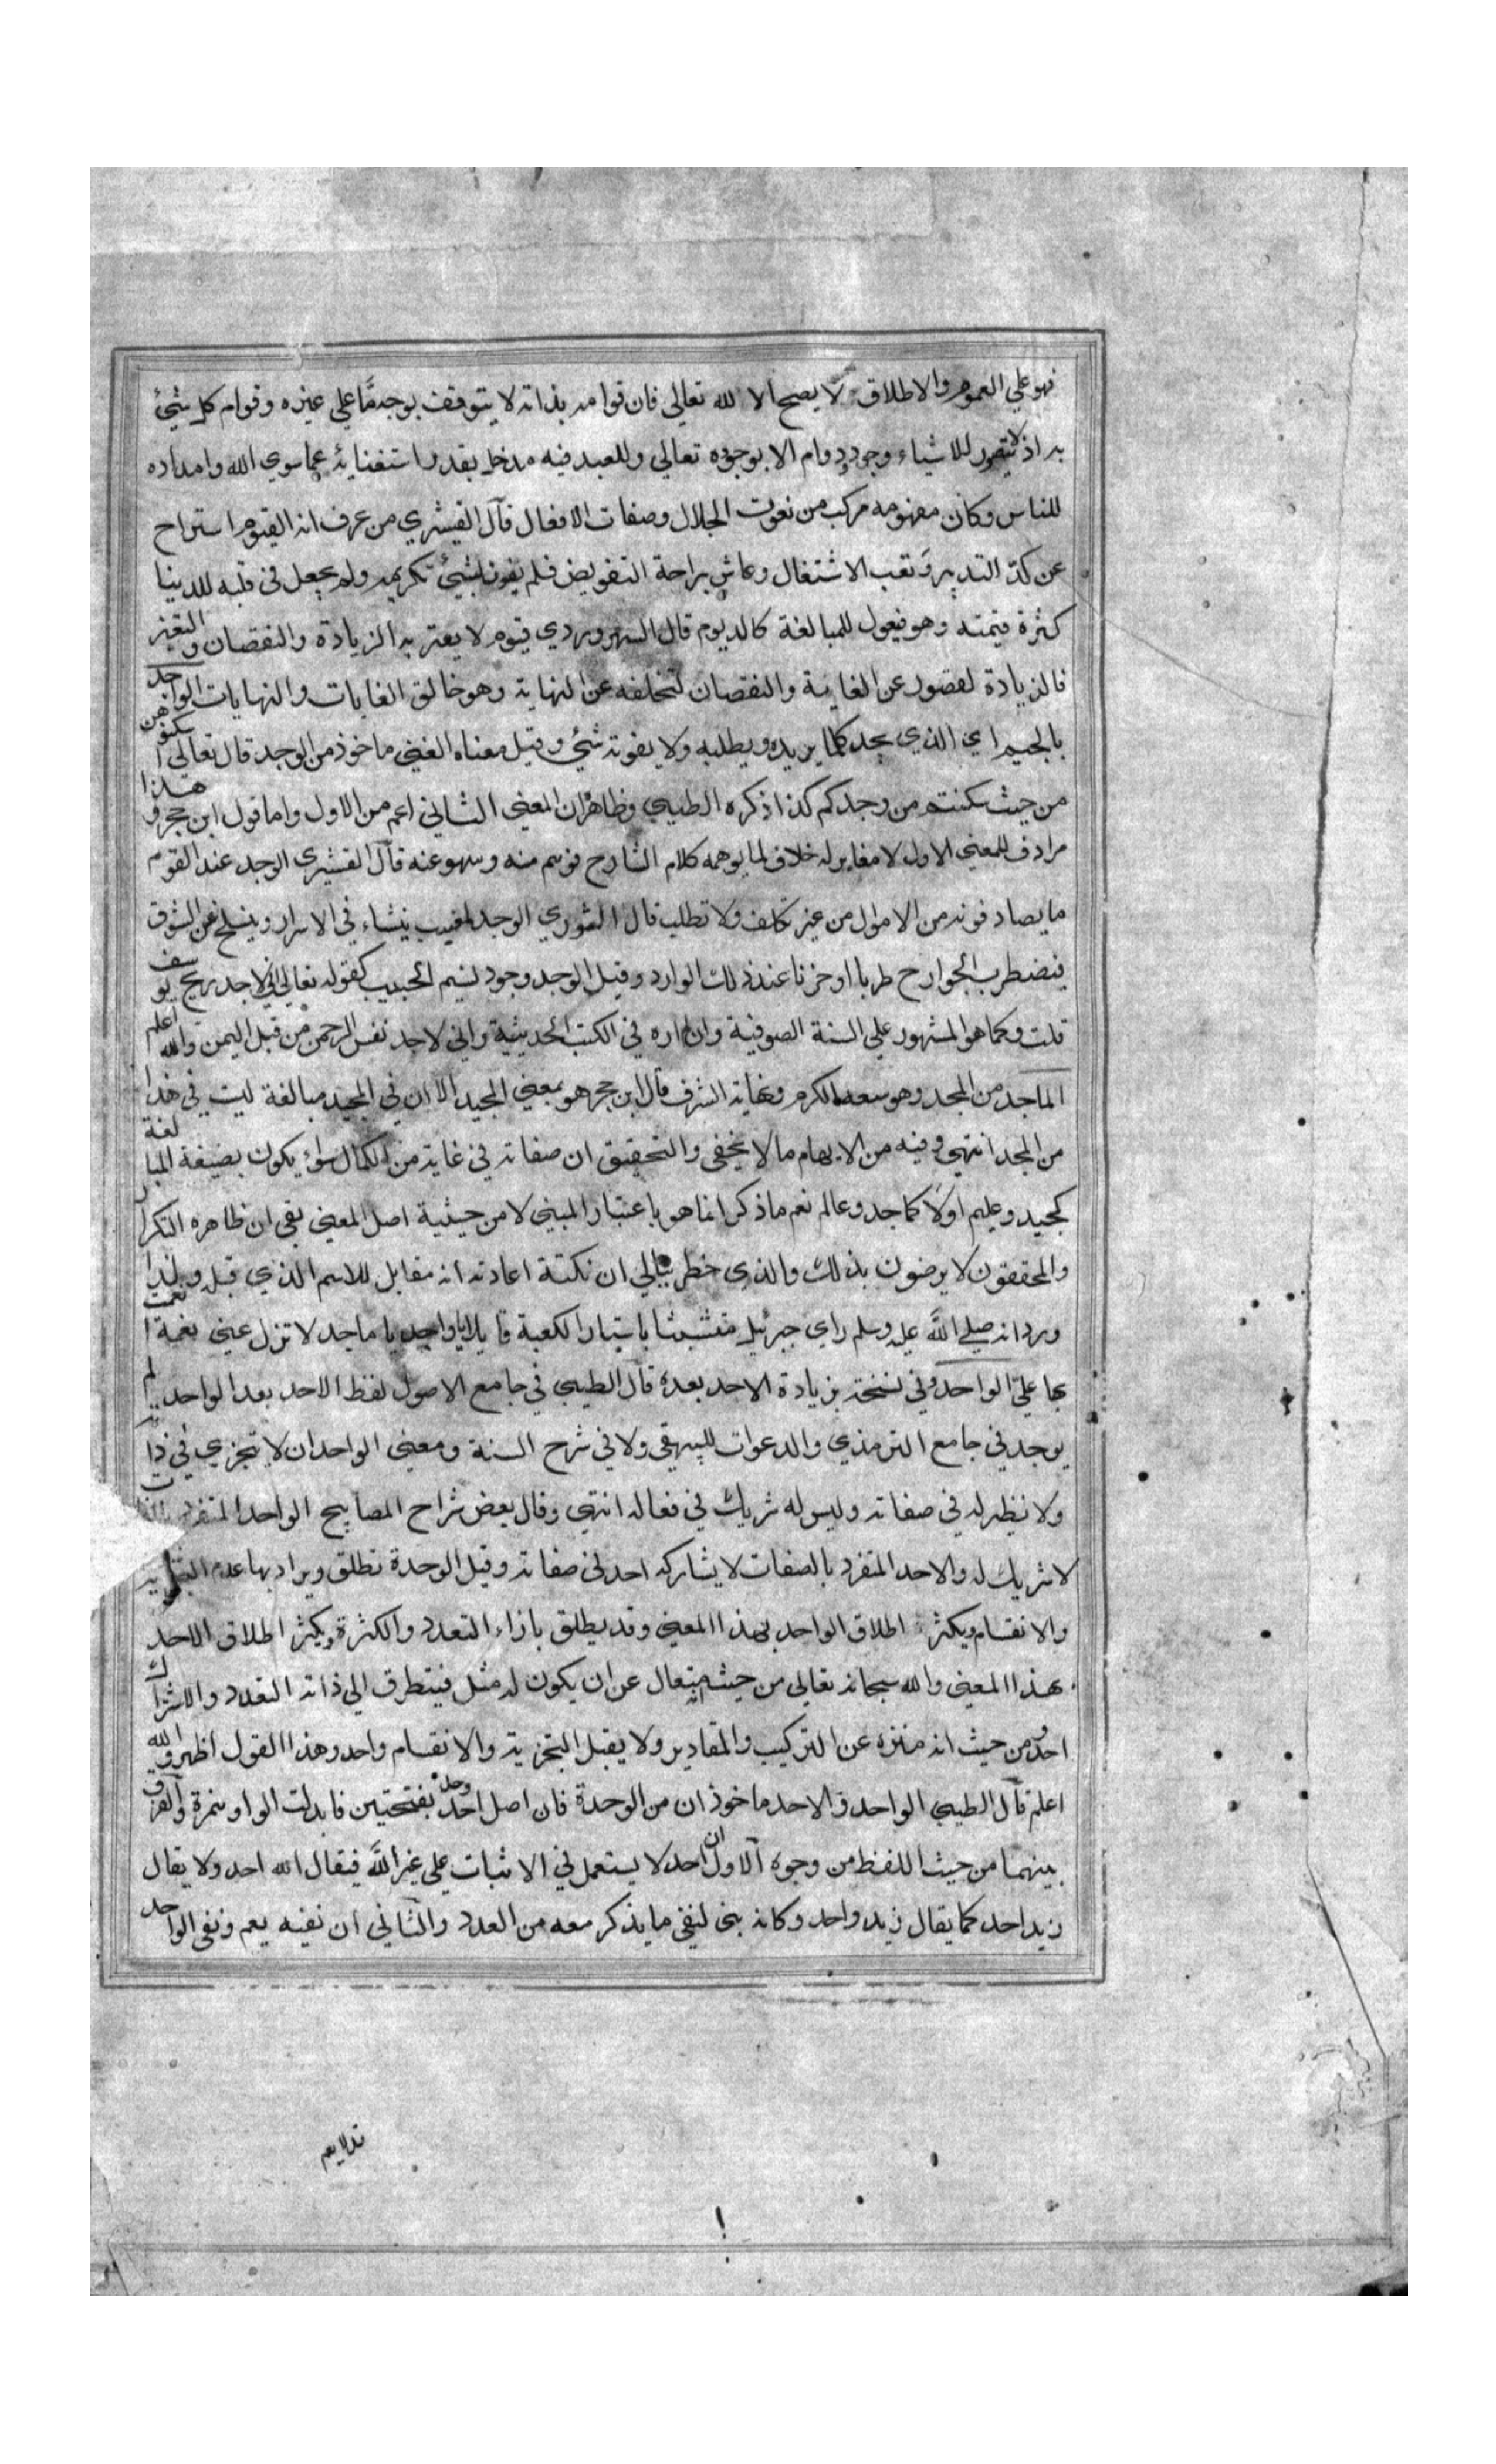 فهو علي العموم والاطلاق لا يصح الا لله تعالي فان قوامه بذاته لا يتوقف بوجه مّا علي غيره وقوام كل شيئ
به اذ لا يتصور للاشياء وجود ودوام الا بوجوده تعالي وللعبد فيه مدخل بقدر استغنايه عما سوي الله وامداده
للناس وكان مفهومه مركب من نعوت الجلال وصفات الافعال قال القشيري من عرف انه القيوم استراح
عن كدّ التدبير وتعب الاشتغال وعاش براحة التفويض فلم بشيئ تكريمه ولم يجعل في قلبه للدينا
كثرة قيمته وهو فيعول للمبالغة كالديوم قال السهروردي قيوم لا يعتريه الزيادة والنقصان والتغير
فالزيادة لقصور عن الغاية والنقصان لتخلفه عن النهاية وهو خالق الغايات والنهايات الواجد
بالجيم اي الذي يجد كلما يريده ويطلبه ولا يفوته شيئ وقيل معناه الغني ماخوذ من الوجد قال تعالي اسكنوهن
من حيث سكنتم من وجدكم كذا ذكره الطيبي وظاهر ان المعني الثاني اعم من الاول واما قول ابن حجر وهذا
مرادف للمعني الاول لا مغاير له خلاف لما يوهمه كلام الشارح فوهم منه وسهو عنه قال القشيري الوجد عند القوم
ما يصادفونه من الاموال من غير تكلف ولا تطلب قال الثوري الوجد لهيب ينشاء في الاسرار وينسلخ عن الشوق
فيضطرب الجوارح طربا او حزنا عند ذلك الوارد وقيل الوجد وجود نسيم الحبيب كقوله تعالي اني لاجد ريح يوسف
قلت وكما هو المشهور علي السنة الصوفية وان لم اره في الكتب الحديثية واني لاجد نفس الرحمن من قبل اليمن والله اعلم
الماجد من المجد وهو سعة الكرم ونهاية الشرف قال ابن حجر هو بمعني المجيد الا ان في المجيد مبالغة ليت في هذا
من المجد انتهي وفيه من الايهام ما لا يخفي والتحقيق ان صفاته في غاية من الكمال سواء يكون بصيغة المبالغة
كمجيد وعليم اولا كماجد وعالم نعم ما ذكر انما هو باعتبار المبني لا من حيثية اصل المعني بقي ان ظاهره التكرار
والمحققون لا يرضون بذلك والذي خطر ببالي ان نكتة اعادته انه مقابل للاسم الذي قبله ولهذا
ورد انه صلي اللّه عليه وسلم راي جبرئيل متشبثا باستار الكعبة قايلا يا واجد يا ماجد لا تزل عني نعمة انعمت
بها عليّ الواحد وفي نسخة بزيادة الاحد بعده قال الطيبي في جامع الاصول لفظ الاحد بعد الواحد لم
يوجد في جامع الترمذي والدعوات للبيهقي ولا في شرح السنة ومعني الواحد ان لا تجزي في ذاته
ولا نظير له في صفاته وليس له شريك في فعاله انتهي وقال بعض شراح المصابيح الواحد المتفرد بالذات
لا شريك له والاحد المتفرد بالصفات لا يشاركه احد في صفاته وقيل الوحدة تطلق ويراد بها عدم التجزية
والانقسام ويكثر اطلاق الواحد بهذا المعني وقد يطلق بازاء التعدد والكثرة ويكثر اطلاق الاحد
بهذا المعني والله سبحانه تعالي من حيث متعال عن ان يكون له مثل فيتطرق الي ذاته التعدد والاشراك
احد ومن حيث انه منزه عن التركيب والمقادير ولا يقبل التجزية والانقسام واحد وهذا القول اظهر والله
اعلم قال الطيبي الواحد والاحد ماخوذان من الوحدة فان اصل احد وحد بفتحتين فابدلت الواو همزة والفرق
بينهما من حيث اللفظ من وجوه الاول ان احد لا يستعمل في الاثبات علي غير اللّه فيقال الله احد ولا يقال
زيد احد كما يقال زيد واحد وكانه بني لنفي ما يذكر معه من العدد والثاني ان نفيه يعم ونفي الواحد
قد لا يعم